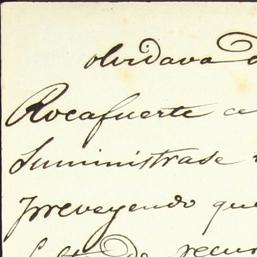 olvidava
Rocafuerte
Suministrase
Preveyendo que
de recur